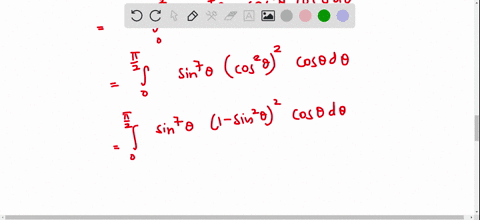 =
= ∫₀^(π/2) sin⁷θ (cos²θ)² cosθ dθ
= ∫₀^(π/2) sin⁷θ (1-sin²θ)² cosθ dθ